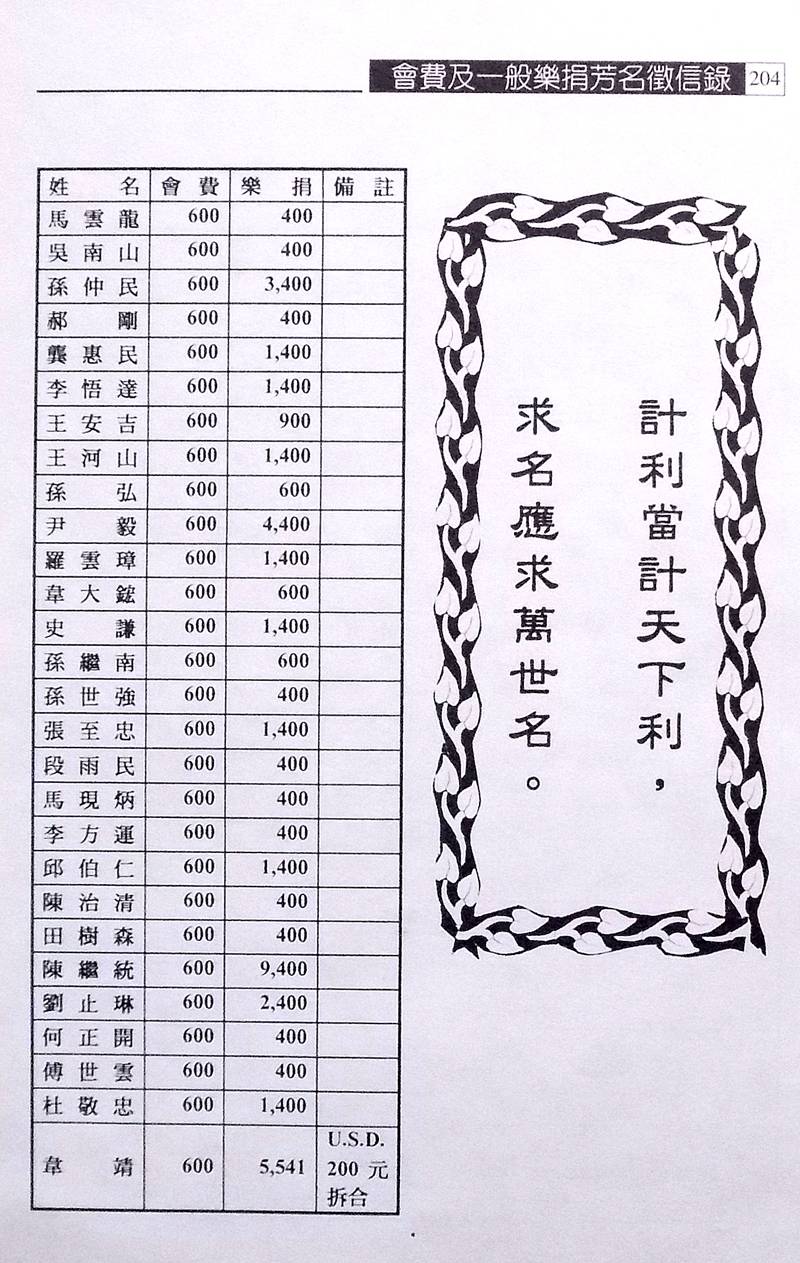 會費及一般樂捐芳名徵信錄 204
姓名 會費 樂捐 備註
馬雲龍 600 400
吳南山 600 400
孫仲民 600 3,400
郝剛 600 400
龔惠民 600 1,400
李悟達 600 1,400
王安吉 600 900
王河山 600 1,400
孫弘 600 600
尹毅 600 4,400
羅雲璋 600 1,400
韋大鋐 600 600
史謙 600 1,400
孫繼南 600 600
孫世強 600 400
張至忠 600 1,400
段雨民 600 400
馬現炳 600 400
李方運 600 400
邱伯仁 600 1,400
陳治清 600 400
田樹森 600 400
陳繼統 600 9,400
劉止琳 600 2,400
何正開 600 400
傅世雲 600 400
杜敬忠 600 1,400
韋靖 600 5,541 U.S.D.
200元
拆合
計利當計天下利，
求名應求萬世名。